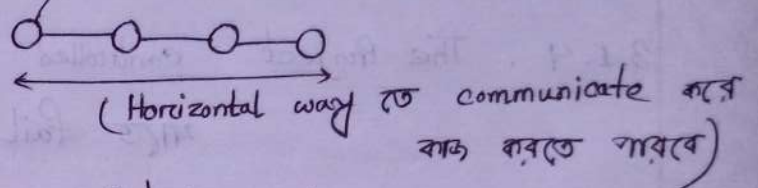 (Horizontal way তে communicate করে
কাজ করতে পারবে)